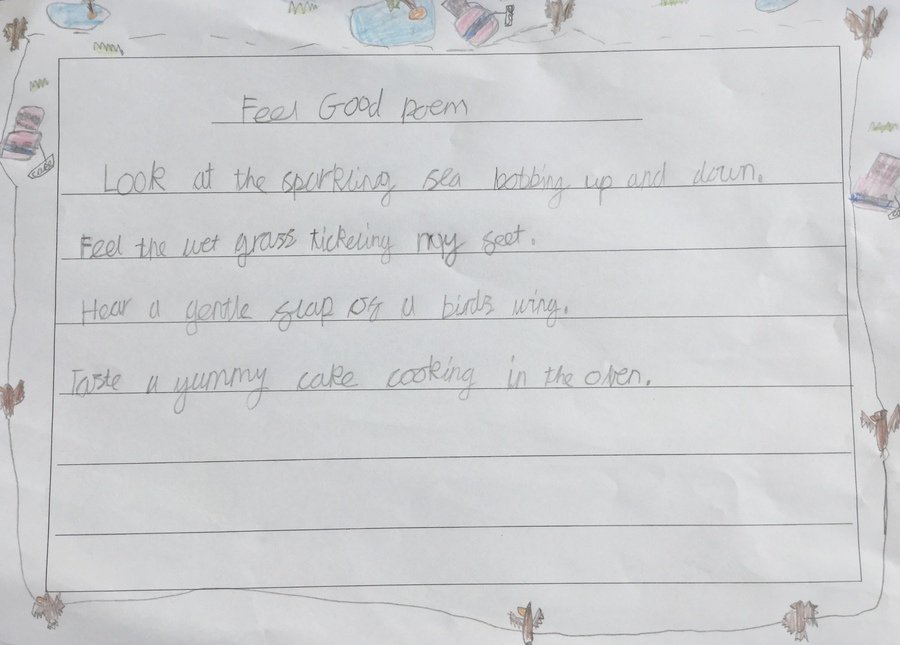 Feel Good poem
Look at the sparkling sea bobbing up and down.
Feel the wet grass tickeling my feet.
Hear a gentle flap of a birds wing.
Taste a yummy cake cooking in the oven.